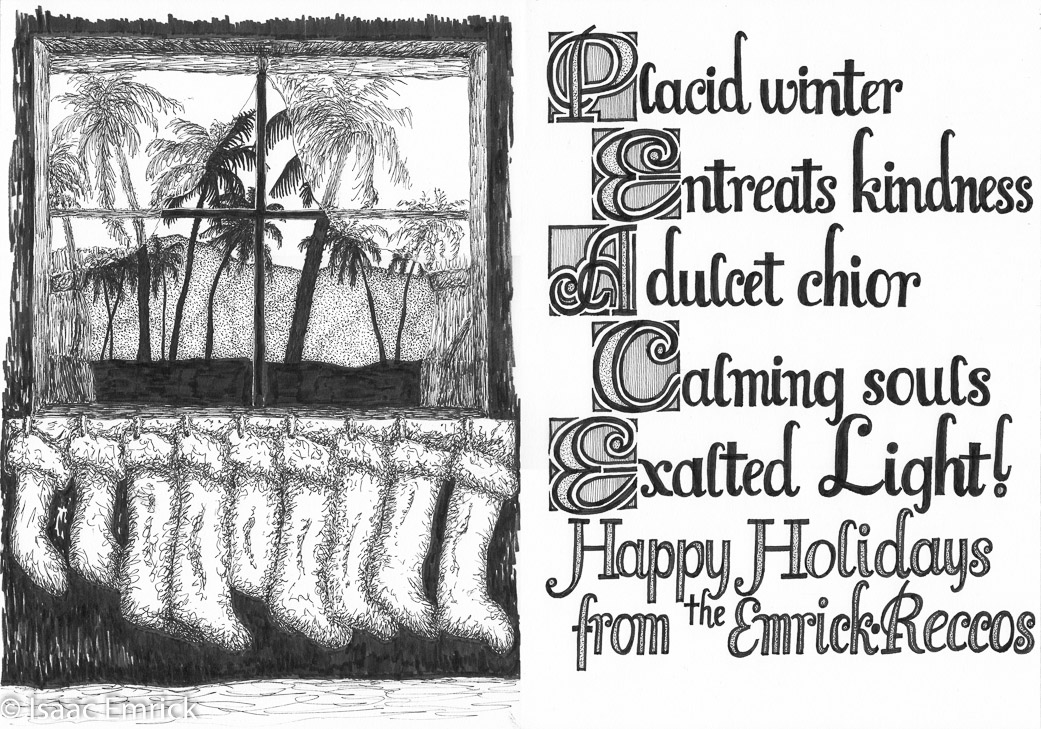 Placid winter
Entreats kindness
A dulcet chior
Calming souls
Exalted Light!
Happy Holidays
from the Emrick·Reccos
© Isaac Emrick